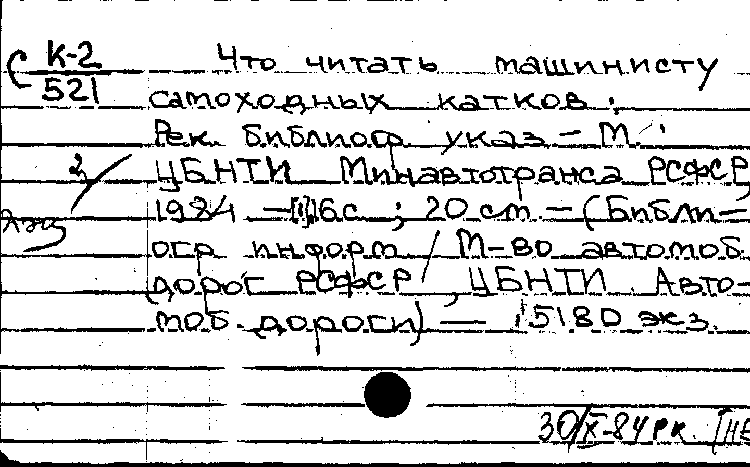 К-2 Что читать машинисту
521 самоходных катков:
Рек. библиогр. указ – М.:
ЦБНТИ Минавтотранса РСФСР,
1984 – 16с.; 20 см. – (Библи–
огр. информ / М-во автомоб.
дорог РСФСР, ЦБНТИ. Авто–
моб. дороги) — 5180 экз.
30/X-84 РК.